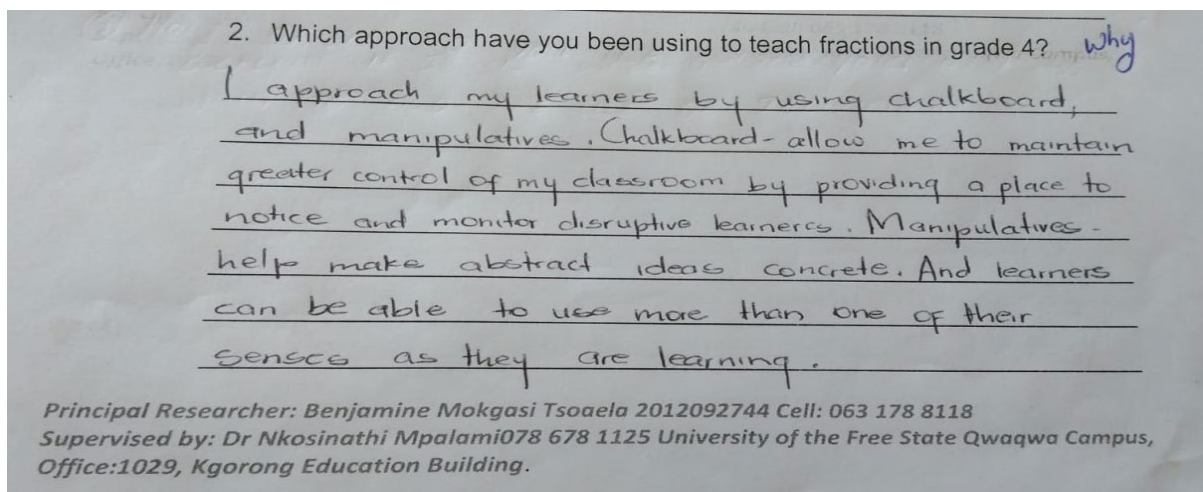 2. Which approach have you been using to teach fractions in grade 4? Why
I approach my learners by using chalkboard,
and manipulatives. Chalkboard - allow me to maintain
greater control of my classroom by providing a place to
notice and monitor disruptive learners. Manipulatives -
help make abstract ideas concrete. And learners
can be able to use more than one of their
senses as they are learning.
Principal Researcher: Benjamine Mokgasi Tsoaela 2012092744 Cell: 063 178 8118
Supervised by: Dr Nkosinathi Mpalami078 678 1125 University of the Free State Qwaqwa Campus,
Office:1029, Kgorong Education Building.